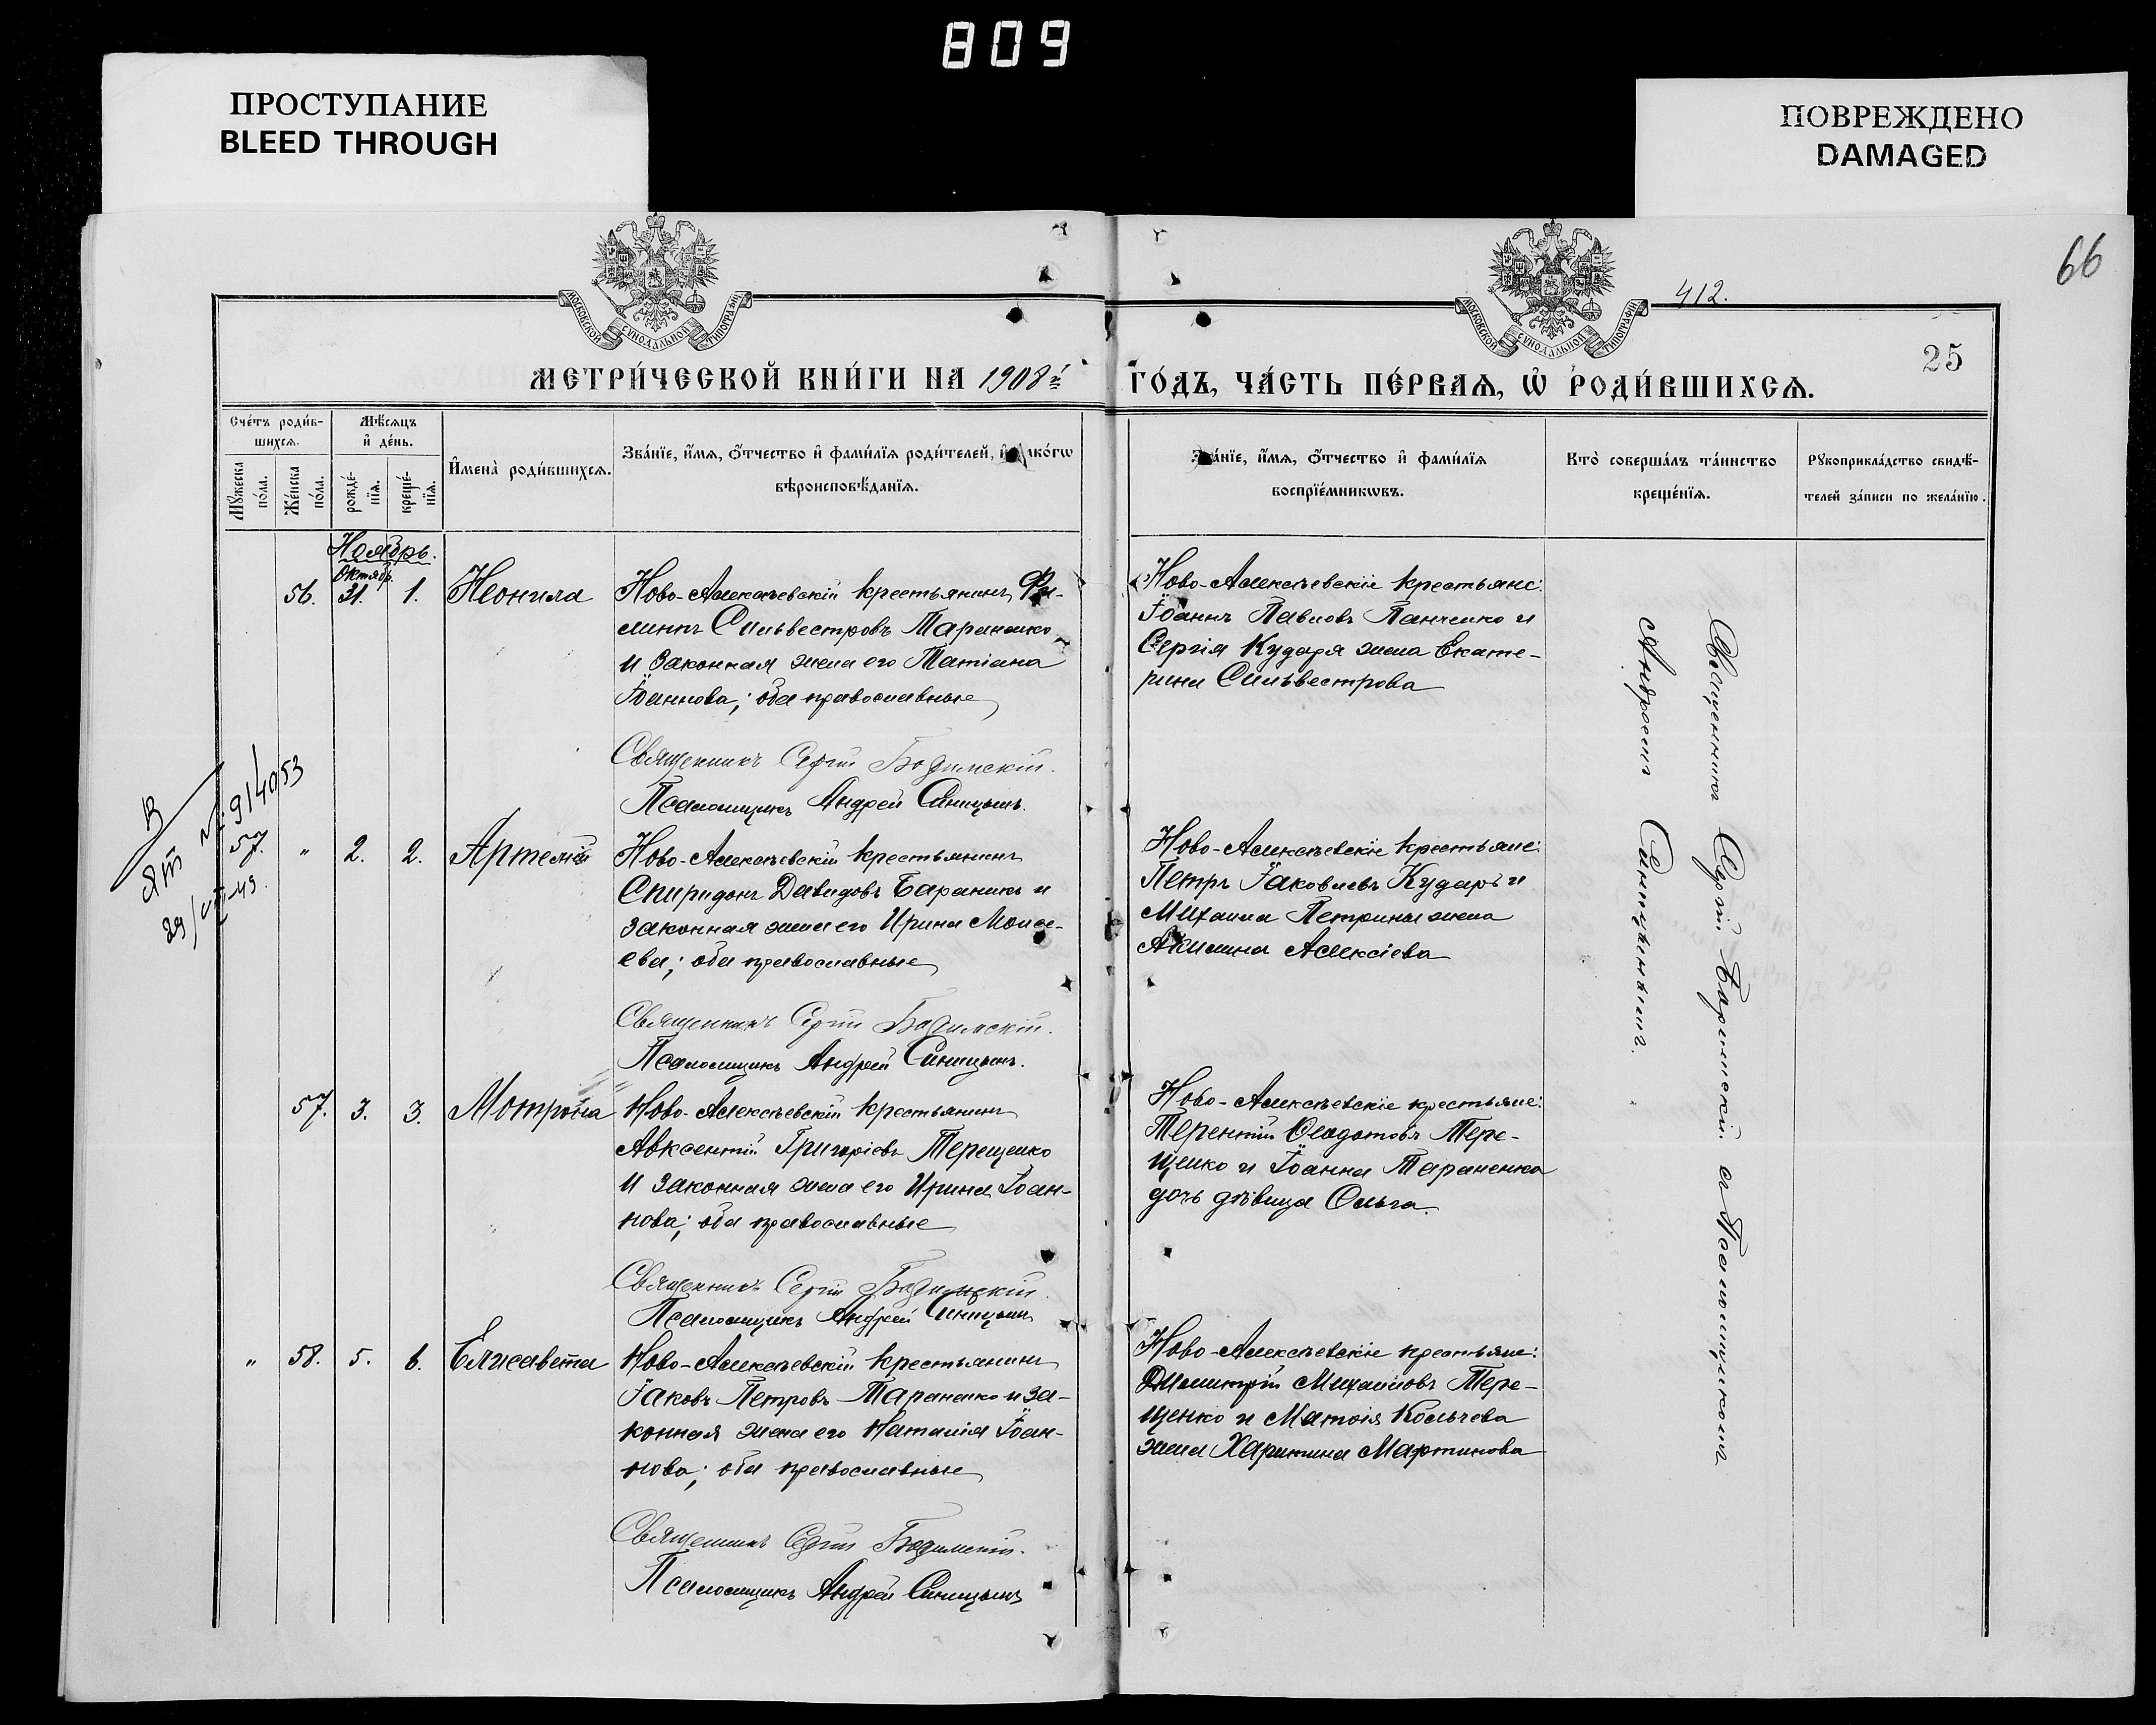 809
ПРОСТУПАНИЕ
BLEED THROUGH
ПОВРЕЖДЕНО
DAMAGED
66
412.
25
МОСКОВСКОЙ СѴНОДАЛЬНОЙ ТИПОГРАФІИ
МОСКОВСКОЙ СѴНОДАЛЬНОЙ ТИПОГРАФІИ
МЕТРИ́ЧЕСКОЙ КНИ́ГИ НА 1908й
ГО́ДЪ, ЧА́СТЬ ПЕ́РВАѦ, Ѽ РОДИ́ВШИХСѦ.
Сче́тъ роди́в-
шихсѧ.
Мꙋ́жеска по́ла.
Же́нска по́ла.
Мѣ́сѧцъ
и҆ де́нь.
рожде́-
нїѧ.
креще́-
нїѧ.
И҆мена̀ роди́вшихсѧ.
Зва́нїе, и҆́мѧ, ѻ҆́тчество и҆ фами́лїѧ роди́телей, и҆ како́гѡ
вѣроисповѣ́данїѧ.
Зва́нїе, и҆́мѧ, ѻ҆́тчество и҆ фами́лїѧ
воспрїе́мникѡвъ.
Кто̀ соверша́лъ та́инство
креще́нїѧ.
Рꙋкоприкла́дство свидѣ́-
телей за́писи по жела́нїю.
Ноябрь.
Октябр.
56. 31. 1. Неонила
Ново-Алексѣевскій крестьянинъ Фи-
липпъ Сильвестровъ Тараненко
и законная жена его Татіана
Іоаннова; оба православные
Священникъ Сергій
Псаломщикъ Андрей Синицынъ.
Ново-Алексѣевскіе крестьяне:
Іоаннъ Павловъ Панченко и
Сергія Кударя жена Екате-
рина Сильвестрова
В
№ 914053
29/VIII-49.
57. " 2. 2. Артемій
Ново-Алексѣевскій крестьянинъ
Спиридонъ Давидовъ Бараникъ и
законная жена его Ирина Моисе-
ева; оба православные
Священникъ Сергій
Псаломщикъ Андрей Синицынъ.
Ново-Алексѣевскіе крестьяне:
Петръ Іаковлевъ Кударь и
Михаила Петрины жена
Акилина Алексіева
57. 3. 3. Мотрона
Ново-Алексѣевскій крестьянинъ
Авксентій Григоріевъ Терещенко
и законная жена его Ирина Іоан-
нова; оба православные
Священникъ Сергій
Псаломщикъ Андрей Синицынъ
Ново-Алексѣевскіе крестьяне:
Терентій Ѳеодотовъ Тере-
щенко и Іоанна Тараненка
дочь дѣвица Ольга.
" 58. 5. 6. Елисавета
Ново-Алексѣевскій крестьянинъ
Іаковъ Петровъ Тараненко и за-
конная жена его Наталія Іоан-
нова; оба православные
Священникъ Сергій
Псаломщикъ Андрей Синицынъ
Ново-Алексѣевскіе крестьяне:
Димитрій Михаиловъ Тере-
щенко и Матѳія Кольчева
жена Харитина Мартинова
Священникъ Сергій съ Псаломщикомъ
Андреемъ Синицынымъ.